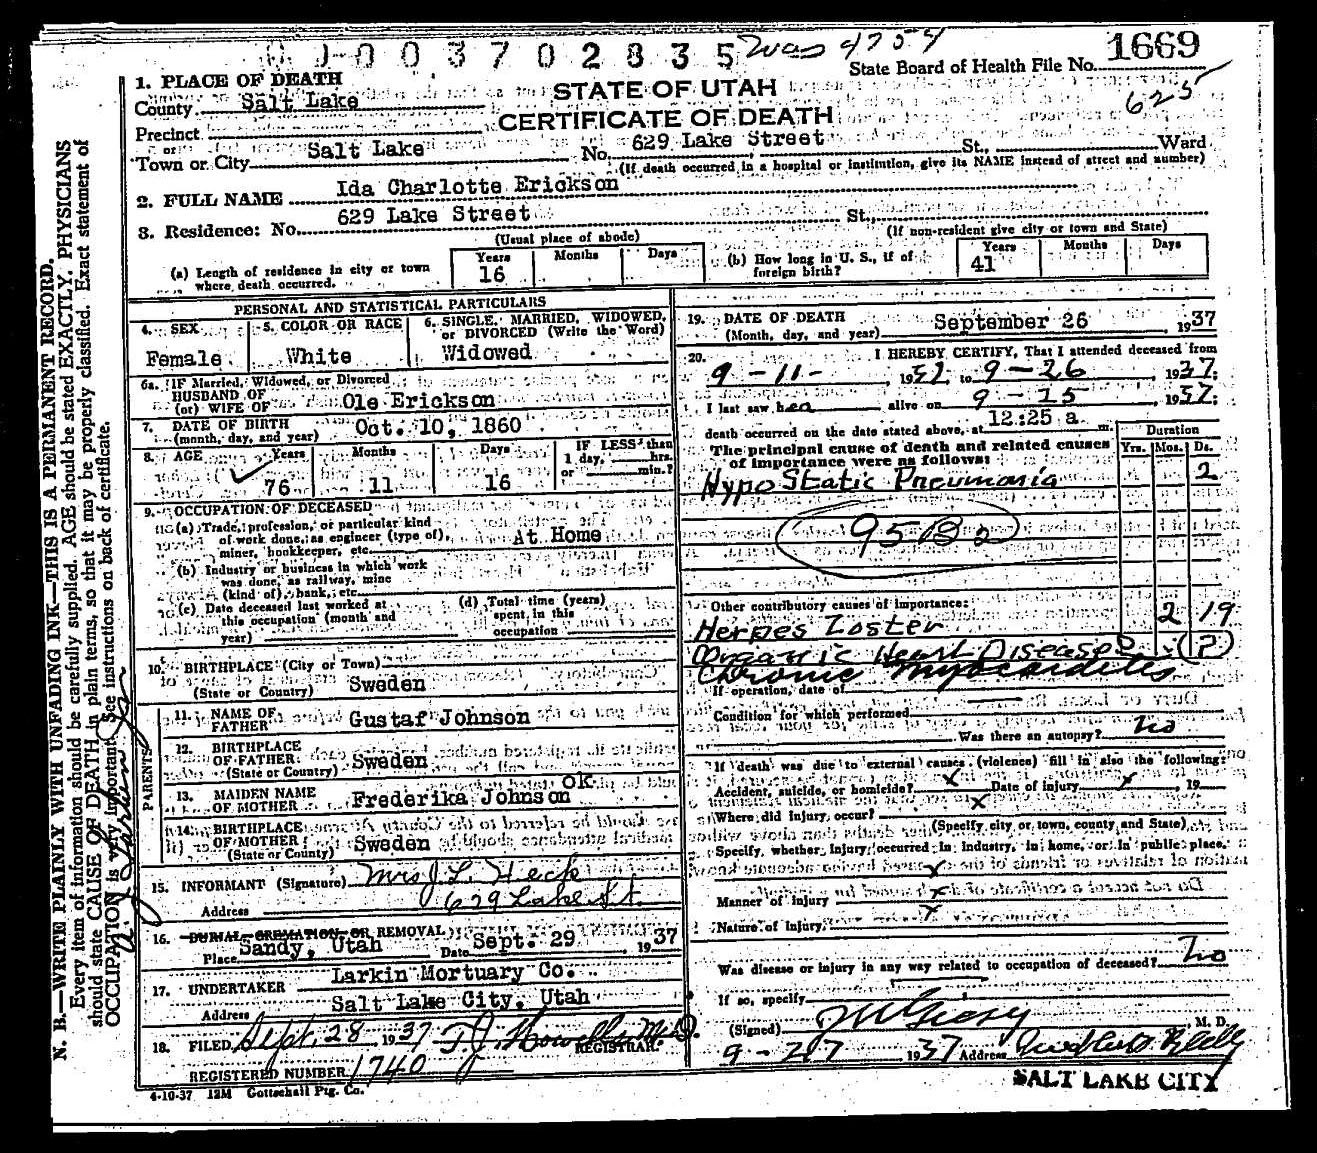 003702835 Was 4754 1669
State Board of Health File No.
625
1. PLACE OF DEATH
STATE OF UTAH
County Salt Lake
CERTIFICATE OF DEATH
Precinct
or
Town or City Salt Lake No. 629 Lake Street St., Ward
(If death occurred in a hospital or institution, give its NAME instead of street and number)
2. FULL NAME Ida Charlotte Erickson
3. Residence: No. 629 Lake Street St.,
(Usual place of abode) (If non-resident give city or town and State)
(a) Length of residence in city or town where death occurred. Years 16 Months Days
(b) How long in U. S., if of foreign birth? Years 41 Months Days
PERSONAL AND STATISTICAL PARTICULARS
4. SEX Female
5. COLOR OR RACE White
6. SINGLE, MARRIED, WIDOWED, or DIVORCED (Write the Word) Widowed
6a. IF Married, Widowed, or Divorced
HUSBAND OF
(or) WIFE OF Ole Erickson
7. DATE OF BIRTH
(month, day, and year) Oct. 10, 1860
8. AGE Years 76 Months 11 Days 16 IF LESS than 1 day, hrs. or min.?
9. OCCUPATION OF DECEASED
(a) Trade, profession, or particular kind
of work done, as engineer (type of),
miner, bookkeeper, etc. At Home
(b) Industry or business in which work
was done, as railway, mine
(kind of), bank, etc.
(c) Date deceased last worked at
this occupation (month and
year)
(d) Total time (years)
spent in this
occupation
10. BIRTHPLACE (City or Town)
(State or Country) Sweden
PARENTS
11. NAME OF
FATHER Gustaf Johnson
12. BIRTHPLACE
OF FATHER
(State or Country) Sweden
13. MAIDEN NAME
OF MOTHER Frederika Johnson OK
14. BIRTHPLACE
OF MOTHER
(State or Country) Sweden
15. INFORMANT (Signature) Mrs J. L. Heck
Address 629 Lake St.
16. BURIAL CREMATION OR REMOVAL
Place Sandy, Utah Date Sept. 29 1937
17. UNDERTAKER Larkin Mortuary Co.
Address Salt Lake City, Utah
18. FILED Sept. 28 1937 T. J. Howells M.D.
REGISTRAR.
REGISTERED NUMBER 1740
4-10-37 12M Gottschall Ptg. Co.
19. DATE OF DEATH
(Month, day, and year) September 26 1937
20. I HEREBY CERTIFY, That I attended deceased from
9-11- 1937 to 9-26 1937;
I last saw her alive on 9-25 1937;
death occurred on the date stated above, at 12:25 a m.
The principal cause of death and related causes
of importance were as follows:
Duration
Yrs. Mos. Ds.
Hypo Static Pneumonia 2
95B2
Other contributory causes of importance:
Herpes Zoster 2 19
Organic Heart Disease ? (?)
Chronic Myocarditis
If operation, date of
Condition for which performed
Was there an autopsy? No
If death was due to external causes (violence) fill in also the following:
Accident, suicide, or homicide? x Date of injury x, 19
Where did injury occur? x
(Specify city or town, county and State)
Specify, whether injury occurred in industry, in home, or in public place.
x
Manner of injury x
Nature of injury x
Was disease or injury in any way related to occupation of deceased? No
If so, specify
(Signed) M. D.
9-27 1937 Address
SALT LAKE CITY
N. B.—WRITE PLAINLY WITH UNFADING INK—THIS IS A PERMANENT RECORD.
Every item of information should be carefully supplied. AGE should be stated EXACTLY. PHYSICIANS
should state CAUSE OF DEATH in plain terms, so that it may be properly classified. Exact statement of
OCCUPATION is very important. See instructions on back of certificate.